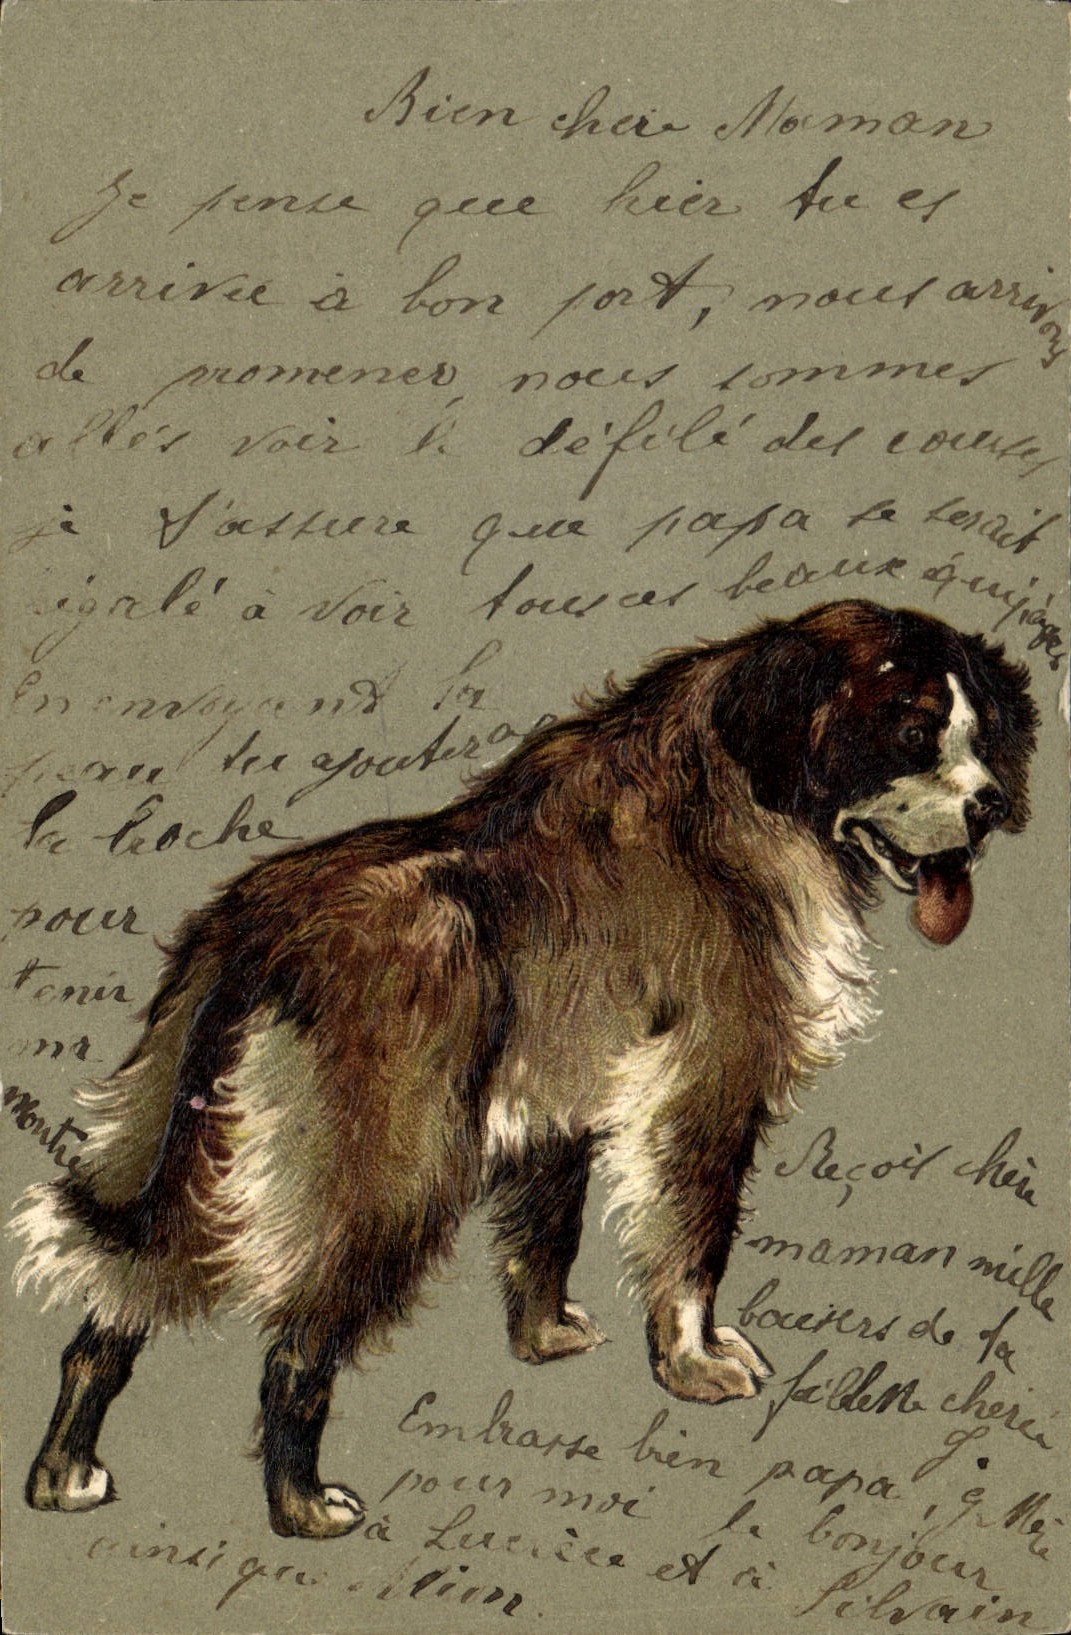 Bien chère Maman
Je pense que hier tu es
arrivée à bon port, nous arrivons
de promener, nous sommes
allés voir le défilé des courses
je t'assure que papa se serait
régalé à voir tous ces beaux équipages
En envoyant la
peau tu ajouteras
la broche
pour
tenir
ma
montre
Reçois chère
maman mille
baisers de ta
fillette chérie
J.
Embrasse bien papa, g. Mère
pour moi le bonjour
à Lucière et à Silvain
ainsi que